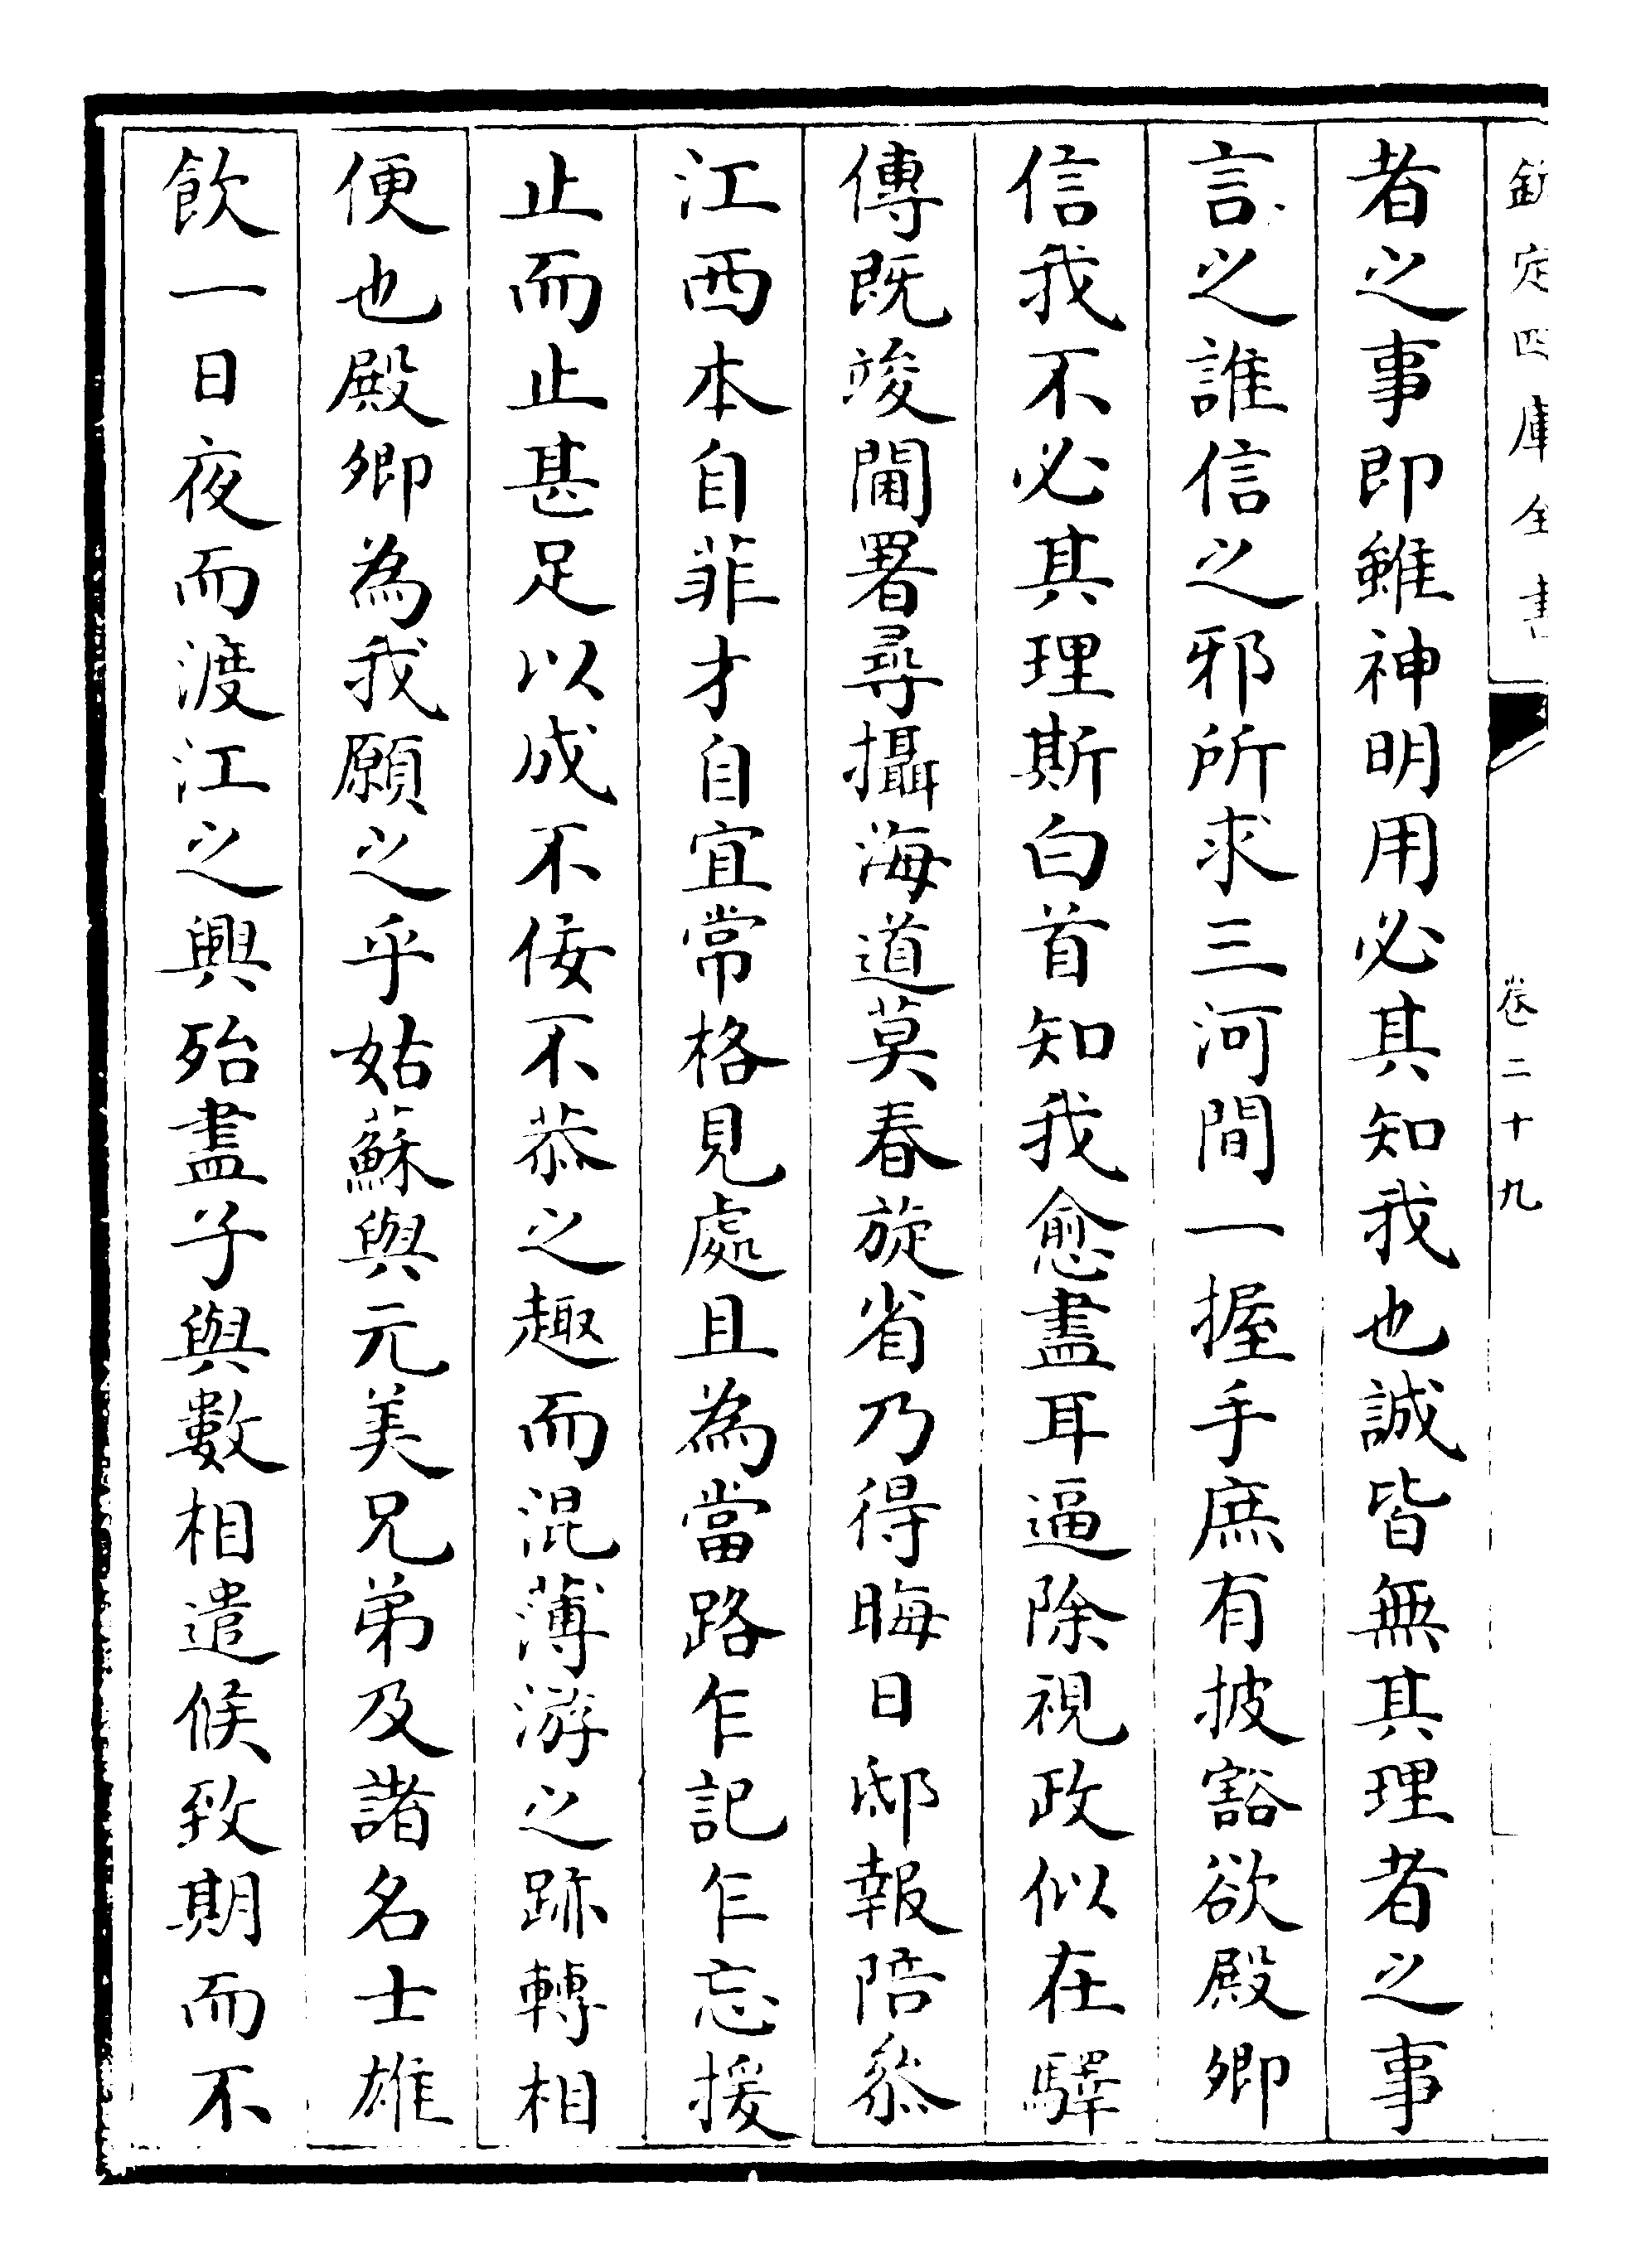 欽定四庫全書
卷二十九
者之事即雖神明用必其知我也誠皆無其理者之事
言之誰信之邪所求三河間一握手庶有披豁欲殿卿
信我不必其理斯白首知我愈盡耳逼除視政似在驛
傳既竣閫署尋攝海道莫春旋省乃得晦日邸報陪㕘
江西本自菲才自宜常格見處且為當路乍記乍忘援
止而止甚足以成不佞不恭之趣而混薄游之跡轉相
便也殿卿為我願之乎姑蘇與元美兄弟及諸名士雄
飲一日夜而渡江之興殆盡子與數相遣候致期而不